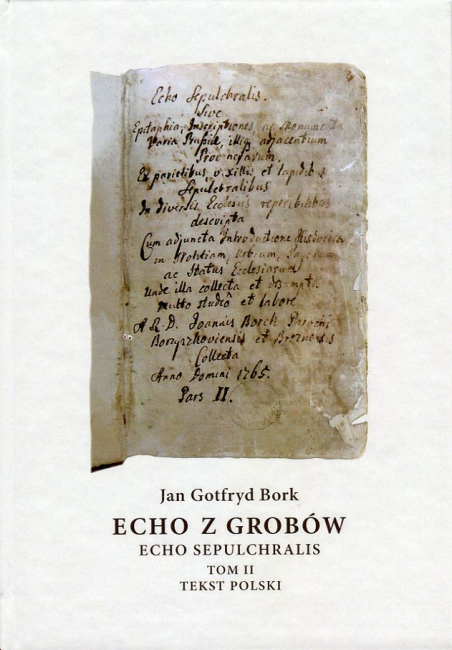 Echo Sepulchralis.
Sive
Epitaphia, Inscriptiones, ac Monumenta
Varia Prussiæ, illiq adjacentium
Provinciarum.
Ex parietibus, vexillis et lapidibus
Sepulchralibus
In diversis Ecclesiis reperibilibus
descripta
Cum adjuncta Introductione Historica
in Notitiam, Urbium,
ac Status Ecclesiarum
Unde illa collecta et desumpta
multo studio et labore
A R. D. Joannis Borck Parochi
Borzyszkoviensis et Brzeznensis
Collecta
Anno Domini 1765.
Pars II.
Jan Gotfryd Bork
ECHO Z GROBÓW
ECHO SEPULCHRALIS
TOM II
TEKST POLSKI